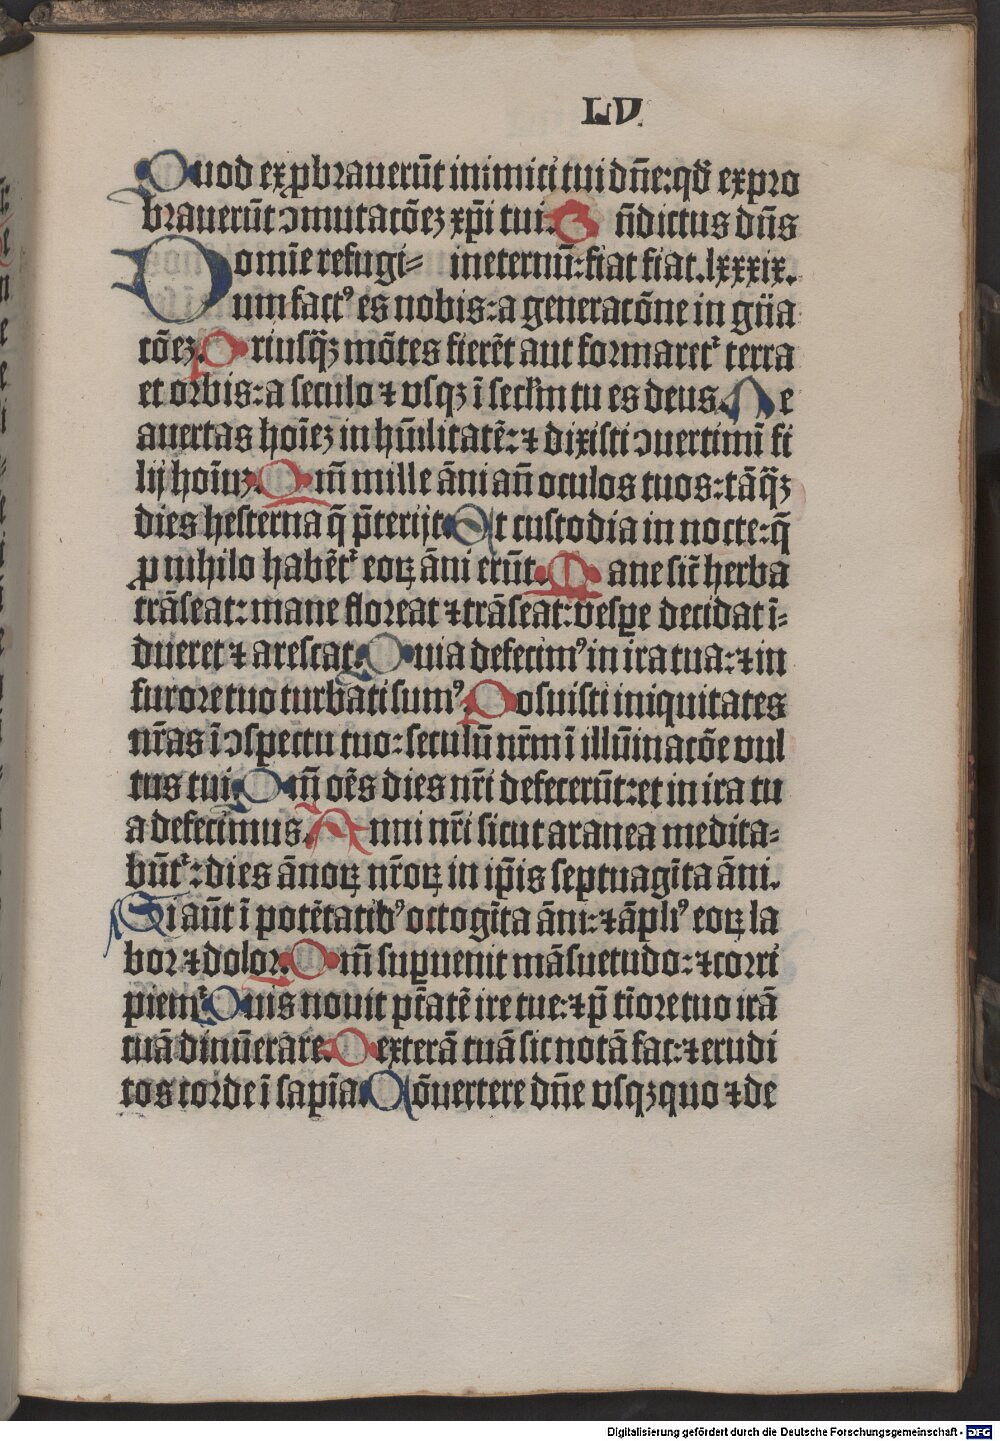 LV
Quod exꝓbrauerūt inimici tui dn̄e:qd̄ expro
brauerūt ↄmutacōez xp̄i tui. Bn̄dictus dn̄s
Domīe refugi= ineternū:fiat fiat.lxxxix.
um factꝰ es nobis:a generacōne in gn̄a
cōez. Priusq̄ꝫ mōtes fierēt aut formaret᷑ terra
et orbis:a seculo ⁊ vsqꝫ ī seclm̄ tu es deus. Ne
auertas hoīez in hūilitatē:⁊ dixisti ↄuertimī fi
lij hoīuꝫ. Qm̄ mille āni an̄ oculos tuos:tāq̄ꝫ
dies hesterna q̄ p̄terijt. Et custodia in nocte:q̄
ꝓ nihilo habēt᷑ eoꝝ āni erūt. Mane sic̄ herba
trāseat:mane floreat ⁊trāseat:vespe decidat ī=
dueret ⁊ arescat. Quia defecimꝰ in ira tua:⁊in
furore tuo turbati sumꝰ. Posuisti iniquitates
nr̄as ī ↄspectu tuo:seculū nr̄m ī illūinacōe vul
tus tui. Qm̄ oēs dies nr̄i defecerūt:et in ira tu
a defecimus. Anni nr̄i sicut aranea medita=
būt᷑:dies ānoꝝ nr̄oꝝ in ip̄is septuagīta āni.
Si aūt ī potētatibꝰ octogīta āni:⁊āpliꝰ eoꝝ la
bor ⁊dolor. Qm̄ suꝑuenit māsuetudo:⁊corri
piem᷑. Quis nouit pt̄atē ire tue:⁊p̄ tīore tuo irā
tuā dinūerare. Dexterā tuā sic notā fac:⁊erudi
tos corde ī sapīa. Cōuertere dn̄e vsqꝫquo ⁊de
Digitalisierung gefördert durch die Deutsche Forschungsgemeinschaft - DFG